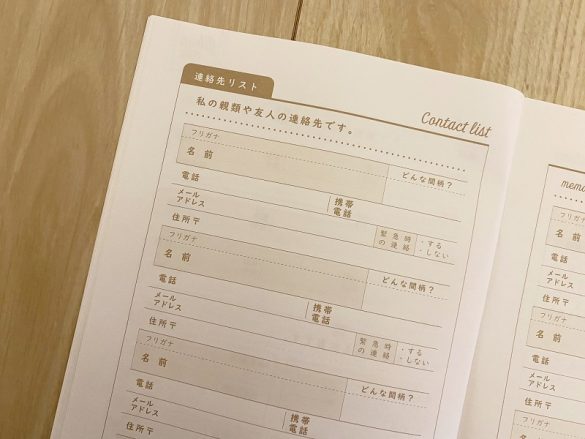 連絡先リスト
私の親類や友人の連絡先です。
Contact list
フリガナ
名前
どんな間柄？
電話
メール
アドレス
携帯
電話
住所〒
緊急時
の連絡
・する
・しない
フリガナ
名前
どんな間柄？
電話
メール
アドレス
携帯
電話
住所〒
緊急時
の連絡
・する
・しない
フリガナ
名前
どんな間柄？
電話
メール
アドレス
携帯
電話
住所〒
memo
フリガナ
名前
電話
メール
アドレス
住所〒
フリガナ
名前
電話
メール
アドレス
住所〒
フリガナ
名前